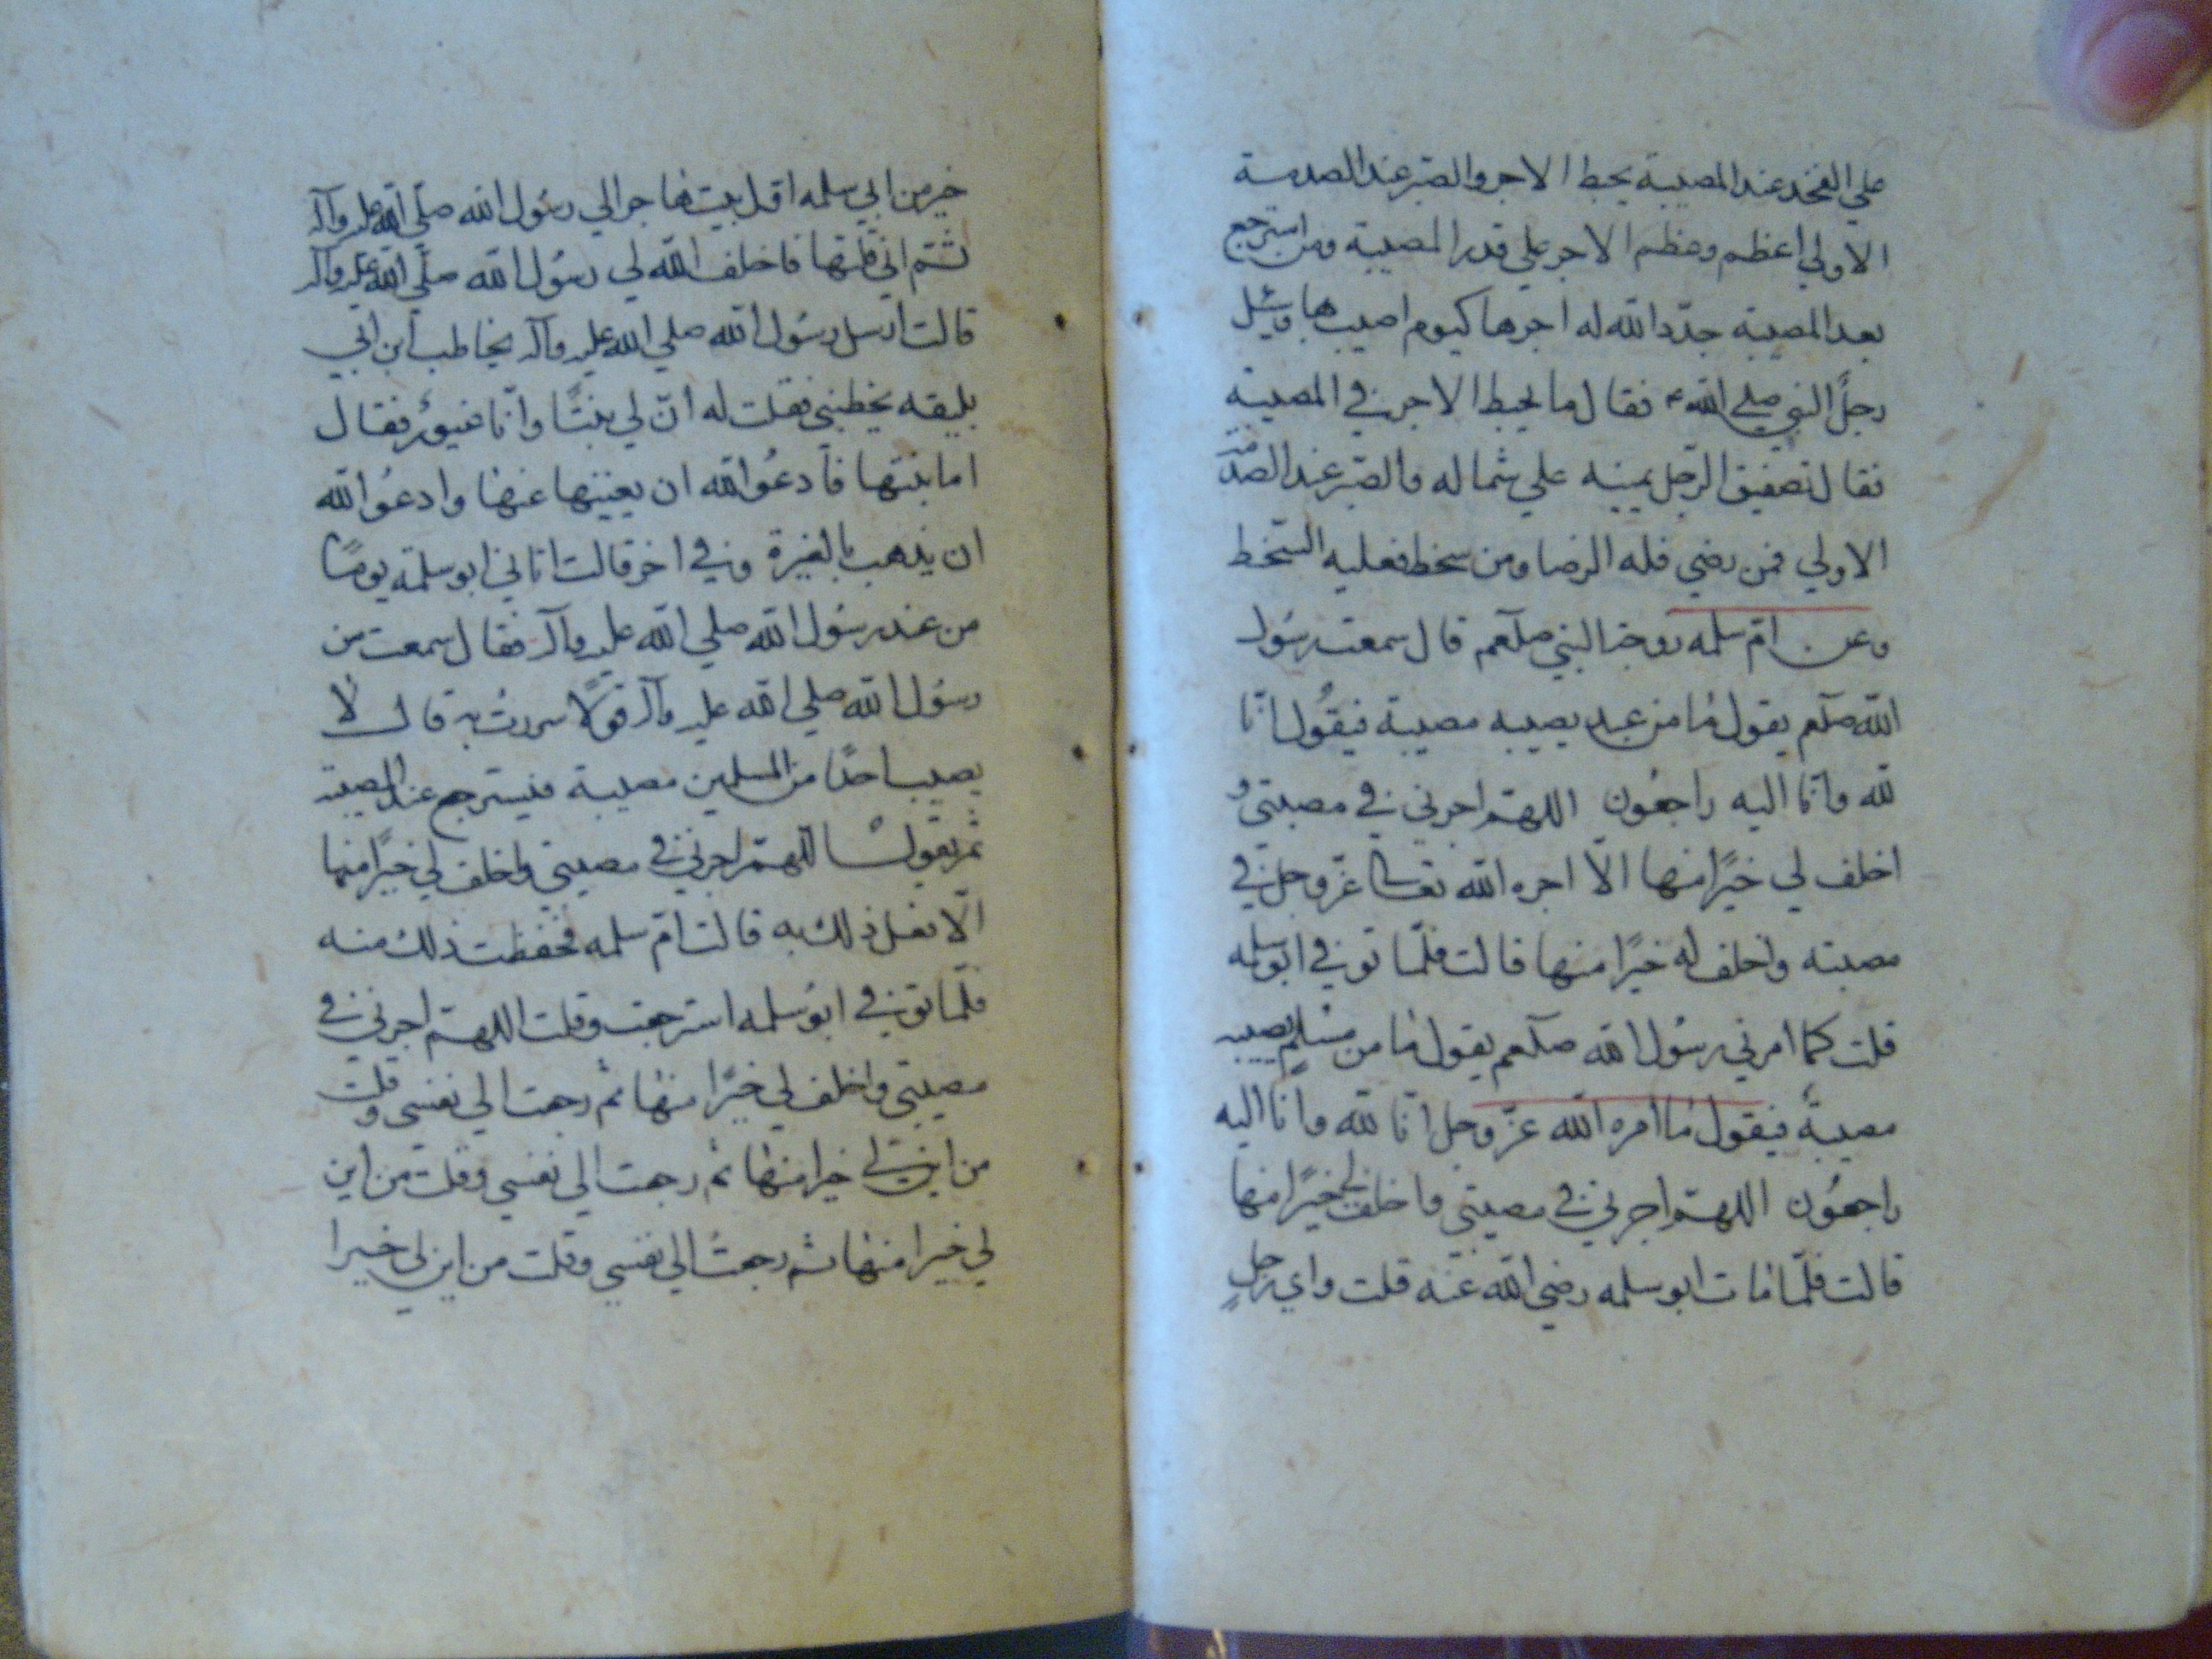 علي الفخذ عند المصيبة يحبط الاجر والصبر عند الصدمة
الاولي اعظم وعظم الاجر علي قدر المصيبة ومن استرجع
بعد المصيبة جدّد الله له اجرها كيوم اصيب بها وسئل
رجلٌ النبي صلي الله فقال ما يحبط الاجر في المصيبة
فقال تصفيق الرجل يمينه علي شماله والصبر عند الصدمة
الاولي فمن رضي فله الرضا ومن سخط فعليه السخط
وعن امّ سلمه زوجة النبي صلعم قال سمعت رسُول
الله صلعم يقول ما من عبد يصيبه مصيبة فيقُول انّا
لله وانّا اليه راجعُون اللهمّ اجرني في مصيبتي و
اخلف لي خيرًا منها الّا اجره الله تعالى عزّ وجل في
مصيبته واخلف له خيرًا منها قالت فلمّا توفي ابو سلمه
قلت كما امرني رسُول الله صلعم يقول ما من مسلمٍ يصيبه
مصيبةٌ فيقول ما امره الله عزّ وجل انّا لله وانا اليه
راجعُون اللهمّ اجرني في مصيبتي واخلف لي خيرًا منها
قالت فلمّا مات ابو سلمه رضي الله عنه قلت واي رجلٍ
خير من ابي سلمه اوّل بيت هاجر الي رسُول الله صلّي الله عليه وآله
ثمّ انّي قلتها فاخلف الله لي رسُول الله صلّي الله عليه وآله
قالت ارسل رسُول الله صلي الله عليه وآله بخاطب ابن ابي
بليقه يخطبني فقلت له انّ لي بنتًا وانا غيورٌ فقال
اما بنتها فادعُوا الله ان يعينها عنها وادعُوا الله
ان يذهب بالغيرة وفي اخر قالت اتاني ابو سلمة يومًا
من عند رسُول الله صلي الله عليه وآله فقال سمعت من
رسُول الله صلي الله عليه وآله قولًا سررتُ به قال لا
يصيب احدًا من المسلمين مصيبة فيسترجع عند المصيبة
ثم يقول اللهمّ اجرني في مصيبتي واخلف لي خيرًا منها
الّا فعل ذلك به قالت امّ سلمه فحفظت ذلك منه
فلمّا توفي ابو سلمه استرجعت وقلت اللهمّ اجرني في
مصيبتي واخلف لي خيرًا منها ثم رجعت الي نفسي وقلت
من اين لي خيرا منها ثم رجعت الي نفسي وقلت من اين
لي خيرا منها ثم رجعتُ الي نفسي وقلت من اين لي خيرا